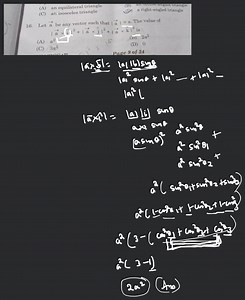 (A) an equilateral triangle
(C) an isosceles triangle
a right-angled triangle
10. Let a⃗ be any vector such that |a⃗| = a. The value of
|a⃗ × î|² + |a⃗ × ĵ|² + |a⃗ × k̂|² is
(A) a²
2a²
(C) 3a²
(D) 0
Page 9 of 24
|a × b| = |a| |b| sinθ
|a|² sinθ + |a|² — + |a|² —
|a|² (
|a × i|² = |a| |i| sinθ
a × 1 sinθ
(a sinθ)²
a² sin²θ +
a² sin²θ₁ +
a² sin²θ₂ +
a² ( sin²θ₁ + sin²θ₂ + sin²θ₃ )
a² ( 1-cos²θ₁ + 1-cos²θ₂ + 1-cos²θ₃ )
a² ( 3 - ( cos²θ₁ + cos²θ₂ + cos²θ₃ )
a² ( 3 - 1 )
2a² Ans